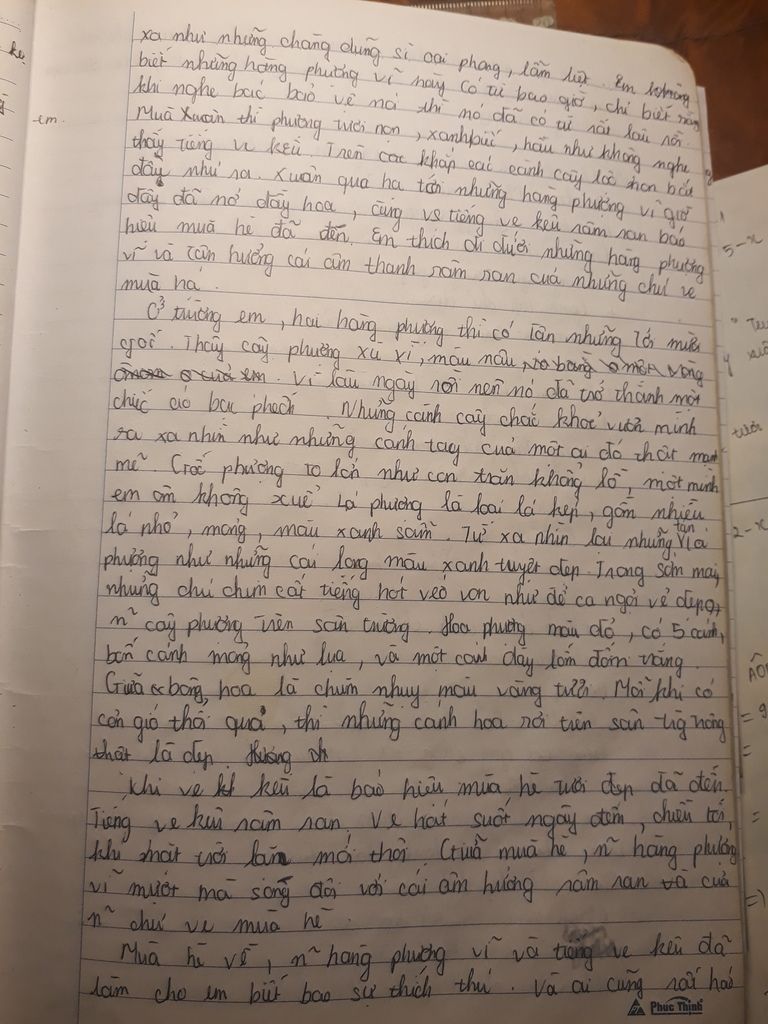 xa như những chàng dũng sĩ oai phong, lẫm liệt. Em không
biết những hàng phượng vĩ này có từ bao giờ, chỉ biết rằng
khi nghe bác bảo vệ nói thì nó đã có từ rất lâu rồi.
Mùa Xuân thì phượng tươi non, xanh biếc, hầu như không nghe
thấy tiếng ve kêu. Trên các khắp các cành cây lộc non bắt
đầy như ra. Xuân qua hạ tới những hàng phượng vĩ giờ
đây đã nở đầy hoa, cùng ve tiếng ve kêu râm ran báo
hiệu mùa hè đã đến. Em thích đi dưới những hàng phượng
vĩ và tận hưởng cái âm thanh râm ran của những chú ve
mùa hạ.
Ở trường em, hai hàng phượng thì có tận những tới mười
gốc. Thây cây phượng xù xì, màu nâu,
Vì lâu ngày rồi nên nó đã trở thành một
chiếc áo bạc phếch. Những cành cây chắc khoẻ vươn mình
ra xa nhìn như những cánh tay của một ai đó thật mạnh
mẽ. Gốc phượng to lớn như con trăn khổng lồ, một mình
em ôm không xuể. Lá phượng là loại lá kép, gồm nhiều
lá nhỏ, mỏng, màu xanh sẫm. Từ xa nhìn lại những tán lá
phượng như những cái lọng màu xanh tuyệt đẹp. Trong sớm mai,
những chú chim cất tiếng hót véo von như để ca ngợi vẻ đẹp
n~ cây phượng trên sân trường. Hoa phượng màu đỏ, có 5 cánh,
bốn cánh mỏng như lụa, và một cánh dày lốm đốm vàng.
Giữa bông hoa là chùm nhuỵ màu vàng tươi. Mỗi khi có
cơn gió thổi qua, thì những cánh hoa rơi trên sân trg trông
thật là đẹp. Hương
Khi ve kêu là báo hiệu mùa hè tươi đẹp đã đến.
Tiếng ve kêu râm ran. Ve hát suốt ngày đêm, chiều tới,
khi mặt trời lặn mới thôi. Giữa mùa hè, n~ hàng phượng
vĩ mướt mà sóng đôi với cái âm hưởng râm ran của
n~ chú ve mùa hè.
Mùa hè về, n~ hàng phượng vĩ và tiếng ve kêu đã
làm cho em biết bao sự thích thú. Và ai cũng rất háo
Phuc Thinh
em.
5 - x
2 - x
= 9
=
=
=)